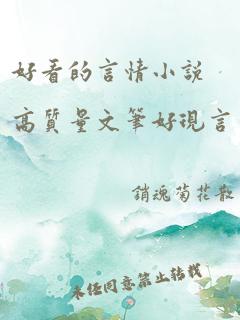 好看的言情小説
高質量文筆好現言
銷魂菊花散
未经同意禁止转载